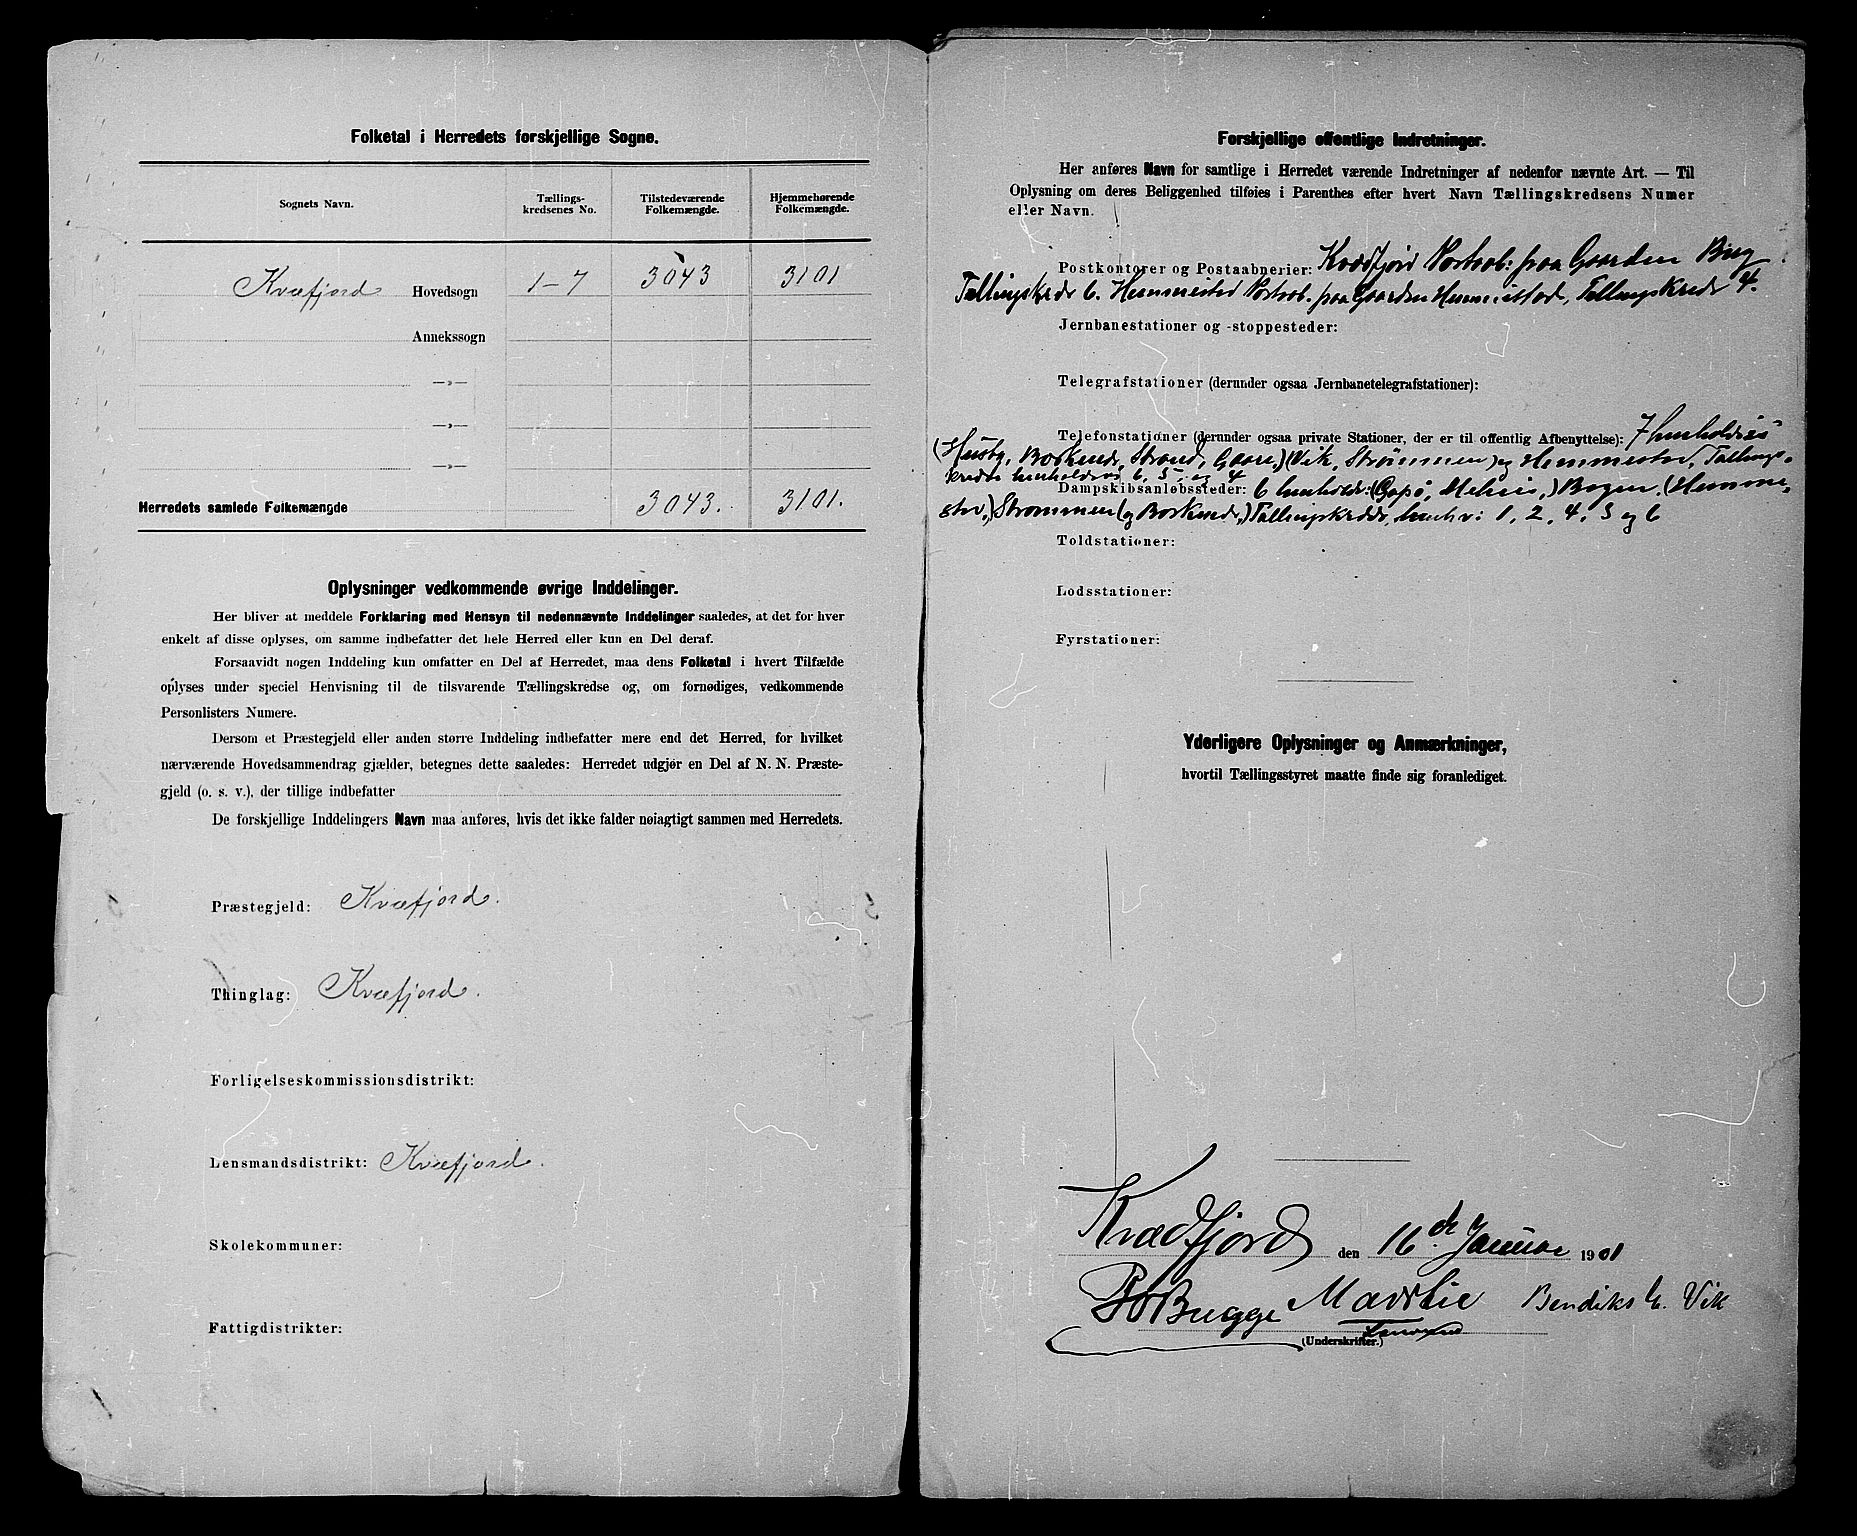 Folketal i Herredets forskjellige Sogne.
Sognets Navn.
Tællings-
kredsenes No.
Tilstedeværende
Folkemængde.
Hjemmehørende
Folkemængde.
Kvæfjord Hovedsogn 1-7 3043 3101
Annekssogn
—„—
—„—
—„—
Herredets samlede Folkemængde 3043. 3101.
Oplysninger vedkommende øvrige Inddelinger.
Her bliver at meddele Forklaring med Hensyn til nedennævnte Inddelinger saaledes, at det for hver
enkelt af disse oplyses, om samme indbefatter det hele Herred eller kun en Del deraf.
Forsaavidt nogen Inddeling kun omfatter en Del af Herredet, maa dens Folketal i hvert Tilfælde
oplyses under speciel Henvisning til de tilsvarende Tællingskredse og, om fornødiges, vedkommende
Personlisters Numere.
Dersom et Præstegjeld eller anden større Inddeling indbefatter mere end det Herred, for hvilket
nærværende Hovedsammendrag gjælder, betegnes dette saaledes: Herredet udgjør en Del af N. N. Præste-
gjeld (o. s. v.), der tillige indbefatter
De forskjellige Inddelingers Navn maa anføres, hvis det ikke falder nøiagtigt sammen med Herredets.
Præstegjeld: Kvæfjord.
Thinglag: Kvæfjord.
Forligelseskommissionsdistrikt:
Lensmandsdistrikt: Kvæfjord.
Skolekommuner:
Fattigdistrikter:
Forskjellige offentlige Indretninger.
Her anføres Navn for samtlige i Herredet værende Indretninger af nedenfor nævnte Art. — Til
Oplysning om deres Beliggenhed tilføies i Parenthes efter hvert Navn Tællingskredsens Numer
eller Navn.
Postkontorer og Postaabnerier: Kvædfjord Postaab: paa Gaarden Bug
Tællingskreds 6. Hemmestad Postaab. paa Gaarden Hemmestad, Tællingskreds 4.
Jernbanestationer og -stoppesteder:
Telegrafstationer (derunder ogsaa Jernbanetelegrafstationer):
Telefonstationer (derunder ogsaa private Stationer, der er til offentlig Afbenyttelse): 7
(Husby, Borkenes, Strand, Gaare,) (Vik, Strømmen) og Hemmestad, Tællings-
kredse henholdsvis 6, 5, og 4
Dampskibsanløbssteder: 6 henholds: (Gapø, Melvis,) Bogen, (Hemme-
stad,) Strømmen (og Borkenes,) Tællingskredse, henhv: 1, 2, 4, 5 og 6
Toldstationer:
Lodsstationer:
Fyrstationer:
Yderligere Oplysninger og Anmærkninger,
hvortil Tællingsstyret maatte finde sig foranlediget.
Kvædfjord den 16de Januar 1901
Bugge Bendiks Vik
(Underskrifter.)